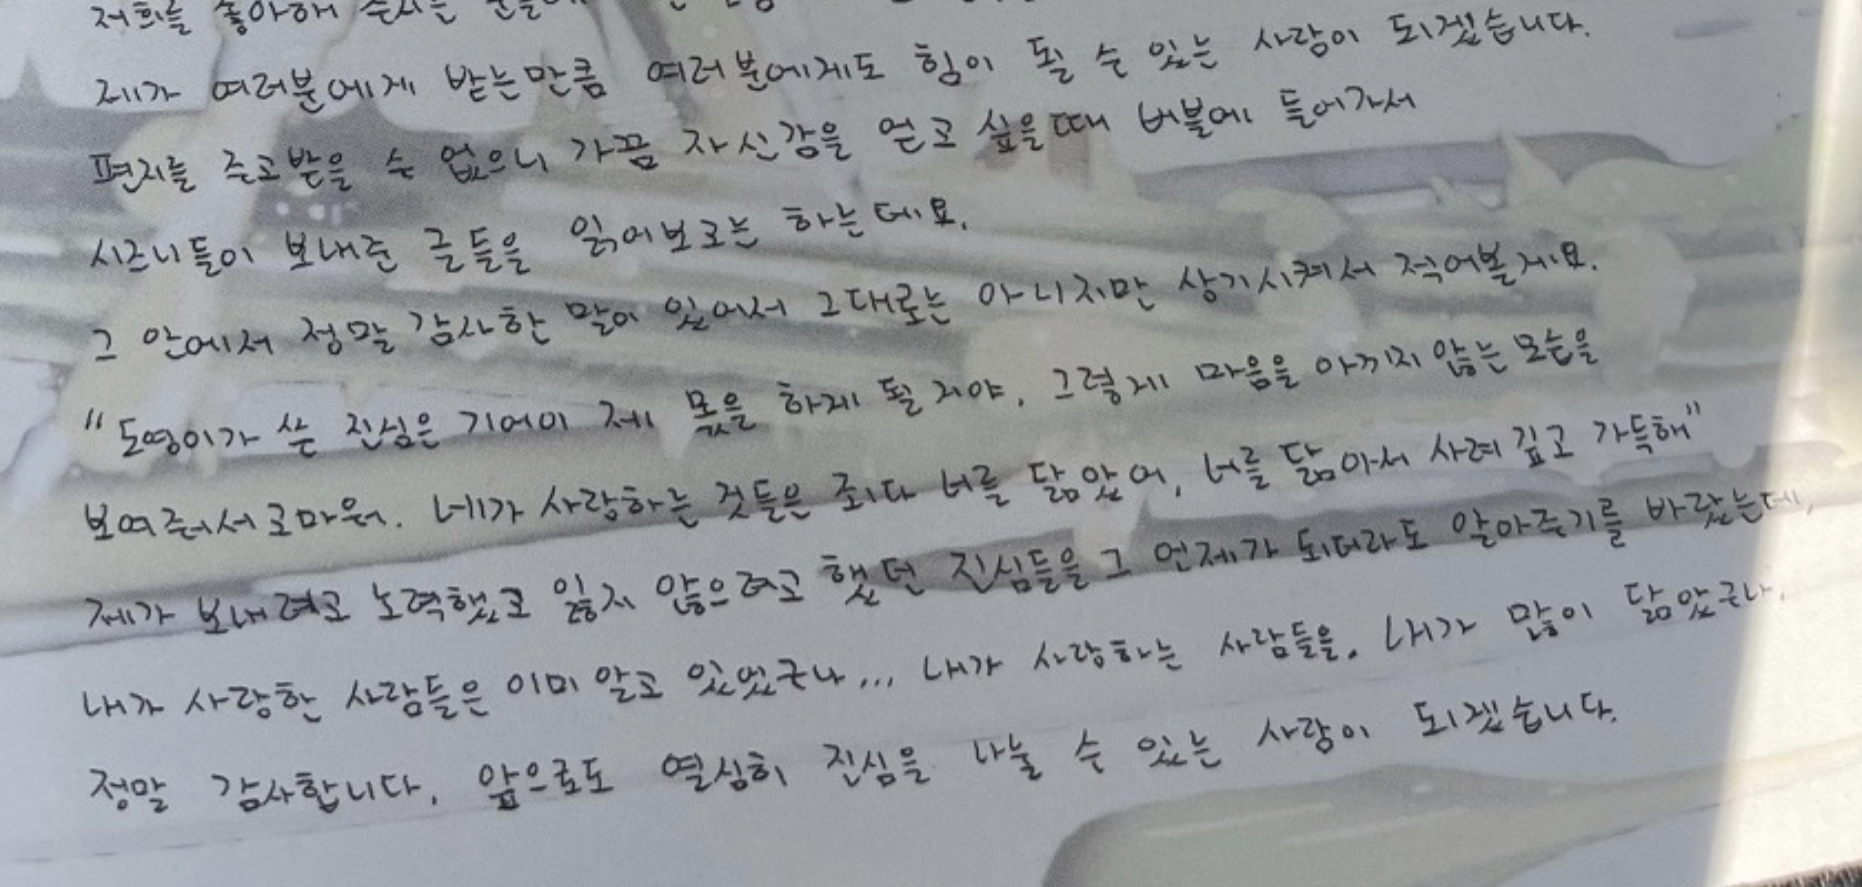 저희를 좋아해 주시는
제가 여러분에게 받는만큼 여러분에게도 힘이 될 수 있는 사람이 되겠습니다.
편지를 주고받을 수 없으니 가끔 자신감을 얻고 싶을때 버블에 들어가서
시즈니들이 보내준 글들을 읽어보고는 하는데요.
그 안에서 정말 감사한 말이 있어서 그대로는 아니지만 상기시켜서 적어볼게요.
"도영이가 쓴 진심은 기어이 제 몫을 하게 될 거야. 그렇게 마음을 아끼지 않는 모습을
보여줘서 고마워. 네가 사랑하는 것들은 죄다 너를 닮았어, 너를 닮아서 사려 깊고 가득해"
제가 보내려고 노력했고 잃지 않으려고 했던 진심들을 그 언제가 되더라도 알아주기를 바랐는데,
내가 사랑한 사람들은 이미 알고 있었구나... 내가 사랑하는 사람들을. 내가 많이 닮았구나.
정말 감사합니다. 앞으로도 열심히 진심을 나눌 수 있는 사람이 되겠습니다.